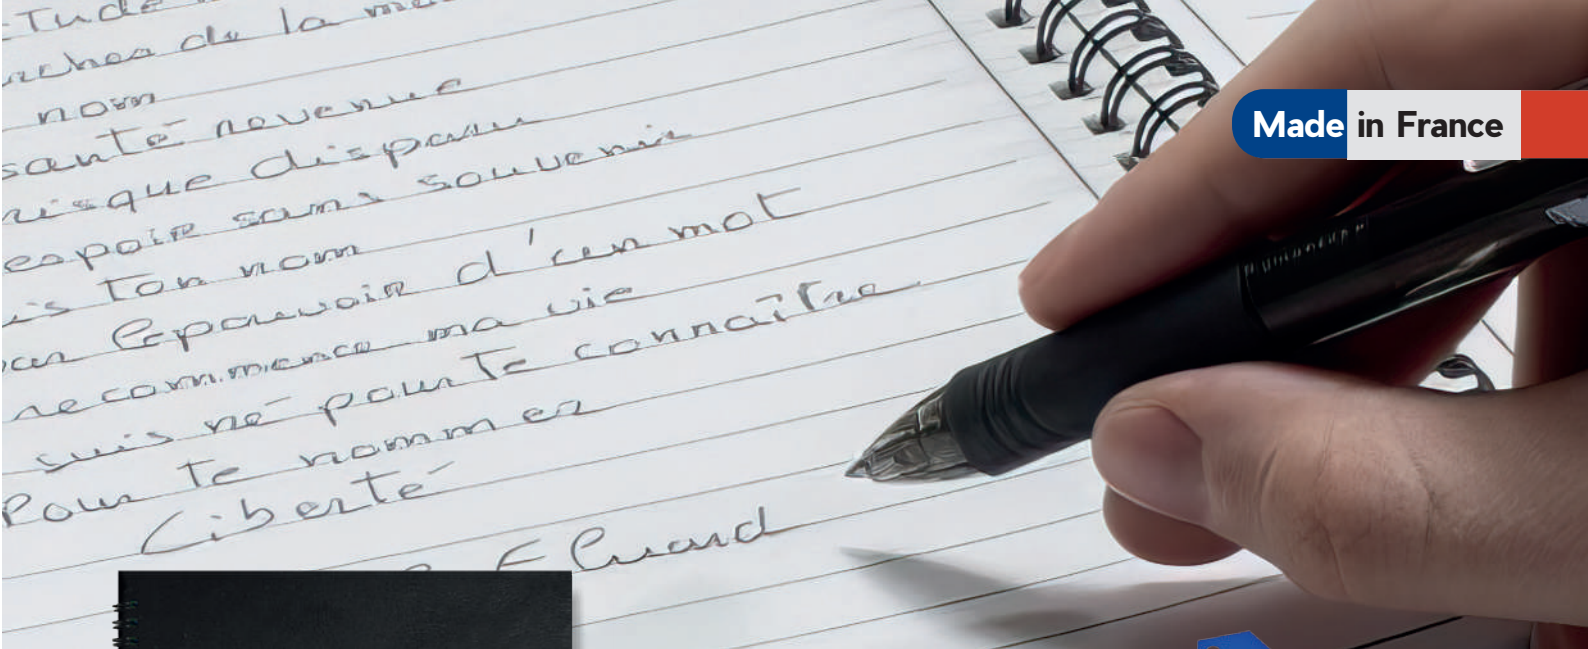 -Tude
arches de la
nom
santé revenue
risque disparu
espoir sans souvenir
is Ton nom
par le pouvoir d'un mot
recommence ma vie
suis né pour te connaître
Pour te nommer
Liberté
Eluard
Made in France